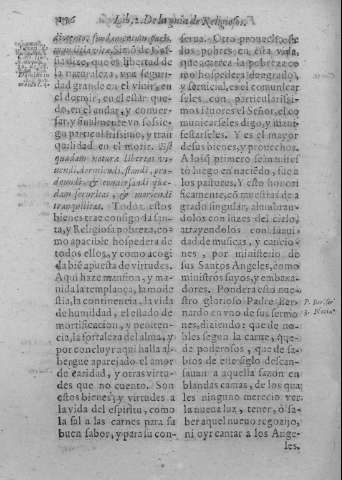 Lib. 2. De la guia de Religiosos.
la naturaleza, vna seguri-
dad grande en el viuir, en
el dormir, en el estar que-
do, en el andar, y conuer-
sar, y finalmente vn sosiego
particularissimo, y tran-
quilidad en el morir. Est
quædam naturæ libertas vi-
uendi, dormiendi, standi, præ-
& conuersandi quæ-
dam securitas, & moriendi
tranquilitas. Todos estos
bienes trae consigo la san-
ta, y Religiosa pobreza, co-
mo apacible hospedera de
todos ellos, y como acogi-
da biẽ apuesta de virtudes.
Aqui haze mansion, y ma-
nida la templança, la mode
stia, la continencia, la vida
de humildad, el estado de
mortificacion, y peniten-
cia, la fortaleza del alma, y
por concluyr aqui halla al-
bergue aparejado el amor
de caridad, y otras virtu-
des que no cuento. Son
estos bienes, y virtudes a
la vida del espiritu, como
la sal a las carnes para su
buen sabor, y para su con-
serua. Otro prouecho, de
los pobres, en esta vida,
que acarrea la pobreza co
mo hospedera de grado,
y seruicial, es el comunicar
seles con particularissi-
mos fauores el Señor, el co
municarseles digo, y mani-
festarseles. Y es el mayor
de sus bienes, y prouechos.
A los q̃ primero se manifes
tò luego en naciẽdo, fue a
los pastores. Y esto honori
ficamente, cõ muestras de a
grado singular, alumbran-
dolos con luzes del cielo,
atrayendolos con suaui-
dad de musicas, y cancio-
nes, por ministerio de
sus Santos Angeles, como
ministros suyos, y embaxa-
dores. Pondera esta nue-
stro glorioso Padre Ber-
nardo en vno de sus sermo
nes, diziendo: que de no-
bles segun la carne, que
de poderosos, que de sa-
bios de este siglo descan-
sauan a aquella sazon en
blandas camas, de los qua
les ninguno merecio ver
la nueua luz, tener, ò sa-
ber aquel nueuo regozijo,
ni oyr cantar a los Ange-
les.